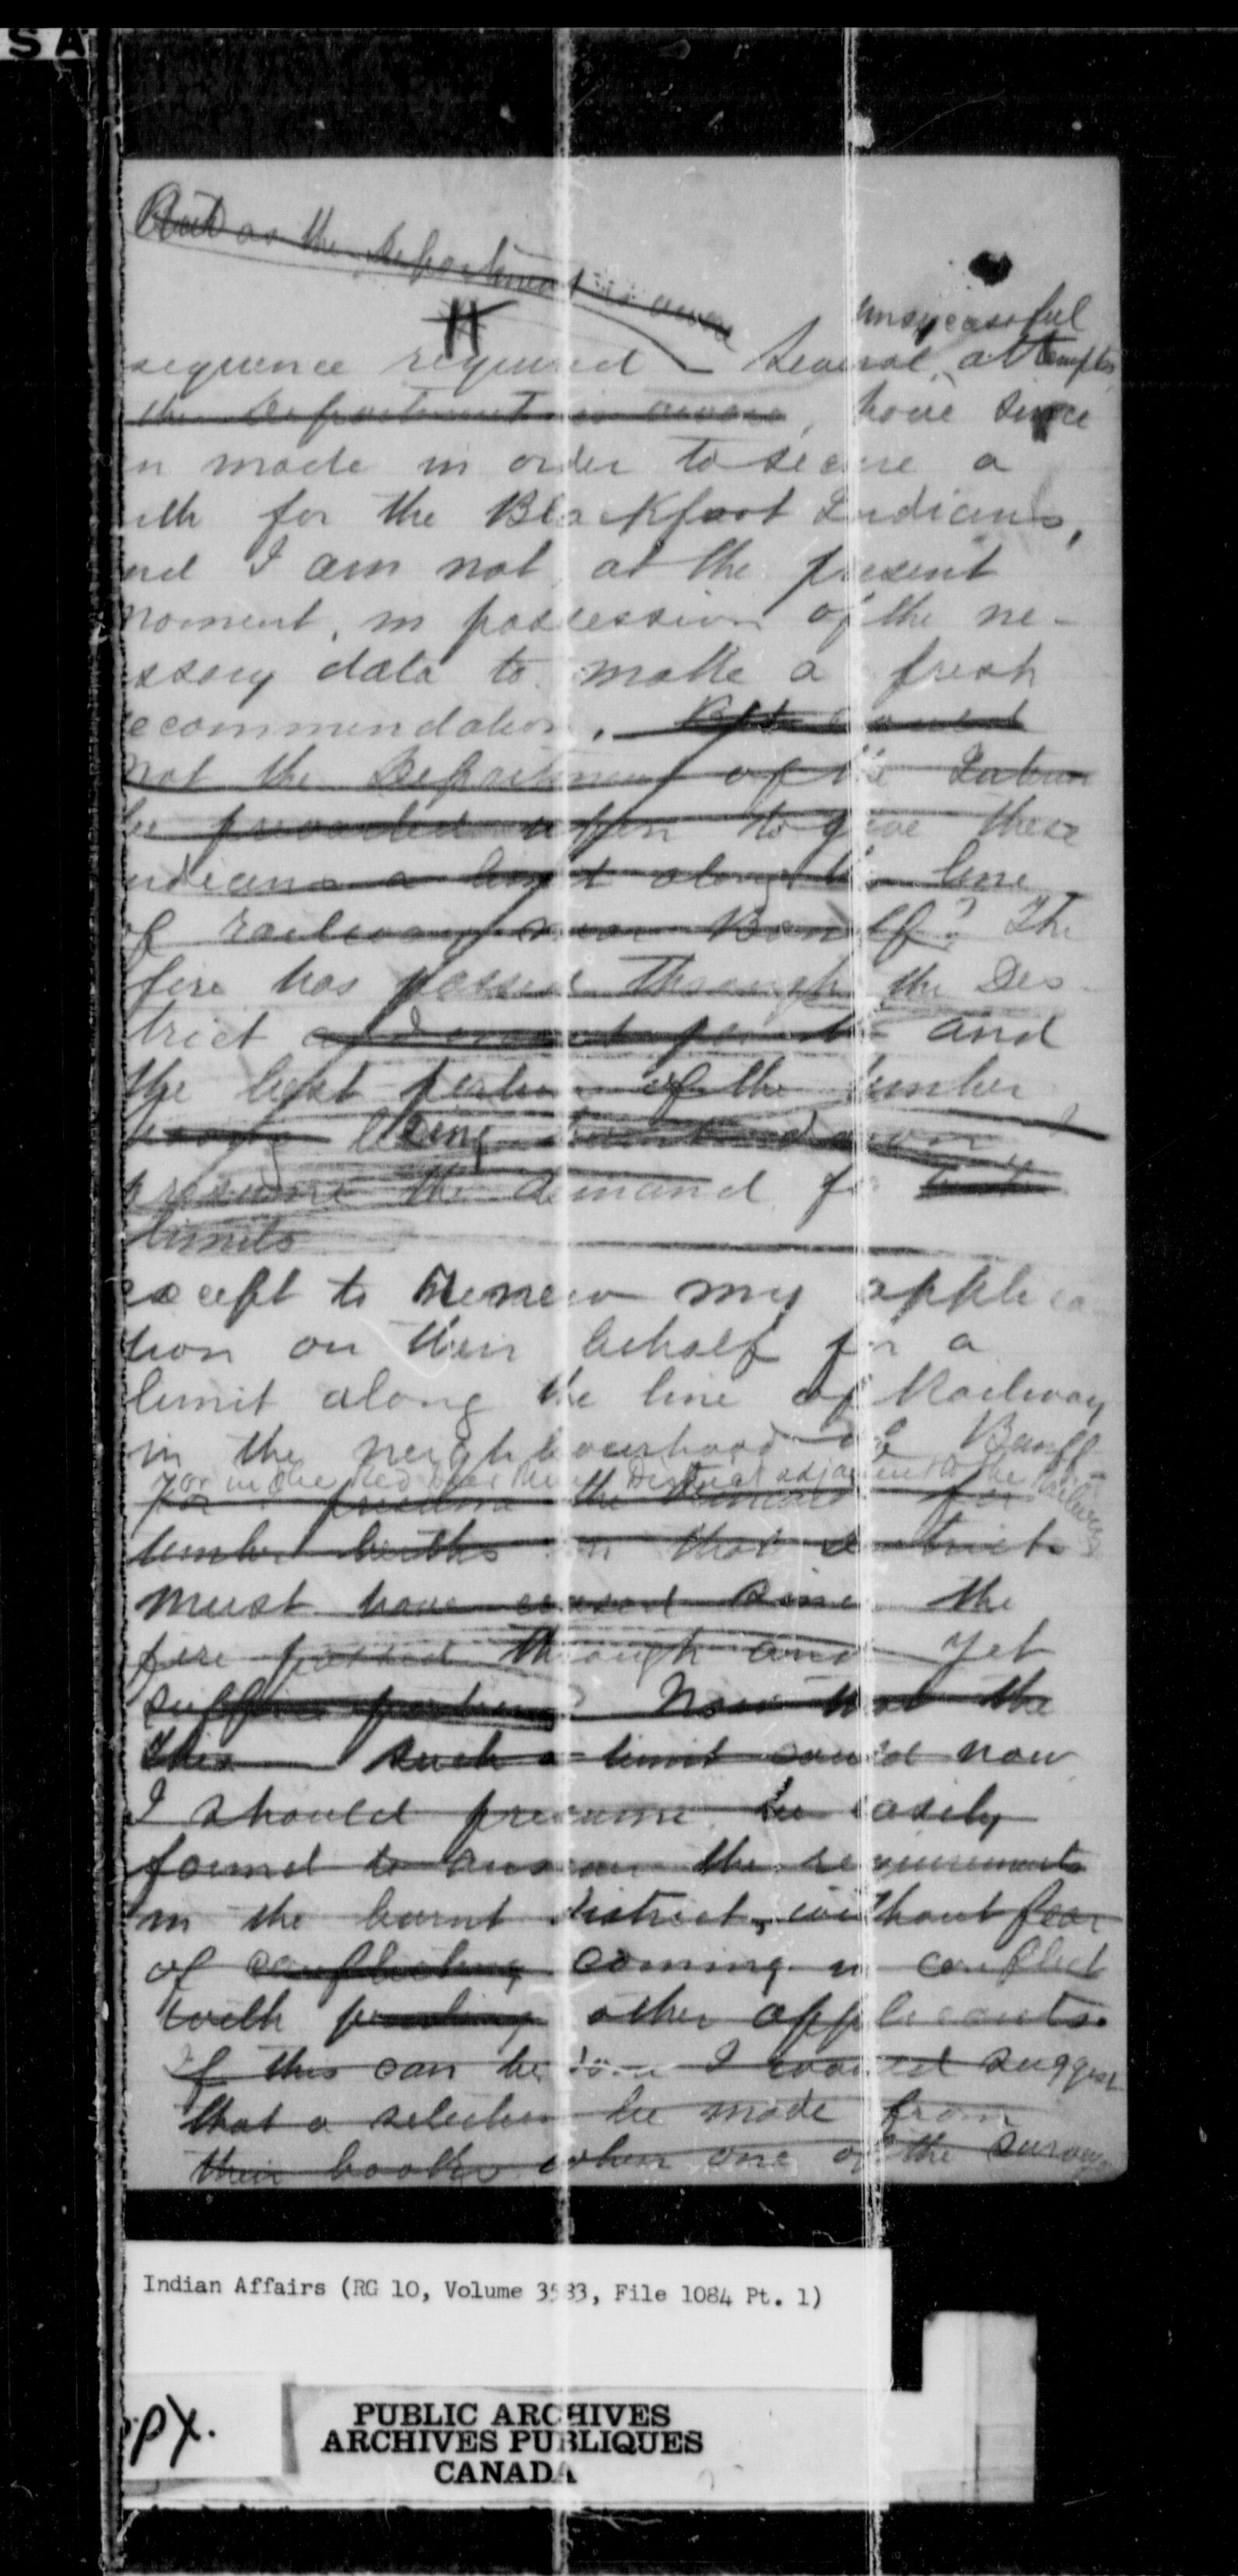 SA
But as the Department is aware
H
unsucessful
sequence required - Several attempts
the Department is aware, have since
n made in order to secure a
rth for the Blackfoot Indians,
nd I am not, at the present
moment, in possession of the ne-
ssary data to make a fresh
ecommendation.
not the Department of the Interior
be prevailed upon to give these
ndians a limit along the line
of railway near Banff? The
fire has passed through the Dis-
trict and
the best portion of the timber
being burnt down I
presume the demand for
limits
except to renew my applica-
tion on their behalf for a
limit along the line of Railway
in the neighbourhood of Banff
or in the Red Deer River District adjacent to the Railway
for I presume the demand for
timber berths in that district
must have ceased since the
fire passed through and yet
Now that the
this such a limit could now
I should presume be easily
found to answer the requirements
in the burnt district, without fear
of conflicting coming in conflict
with pending other applicants.
If this can be done I would suggest
that a selection be made from
their books when one of the survey
Indian Affairs (RG 10, Volume 3583, File 1084 Pt. 1)
py.
PUBLIC ARCHIVES
ARCHIVES PUBLIQUES
CANADA